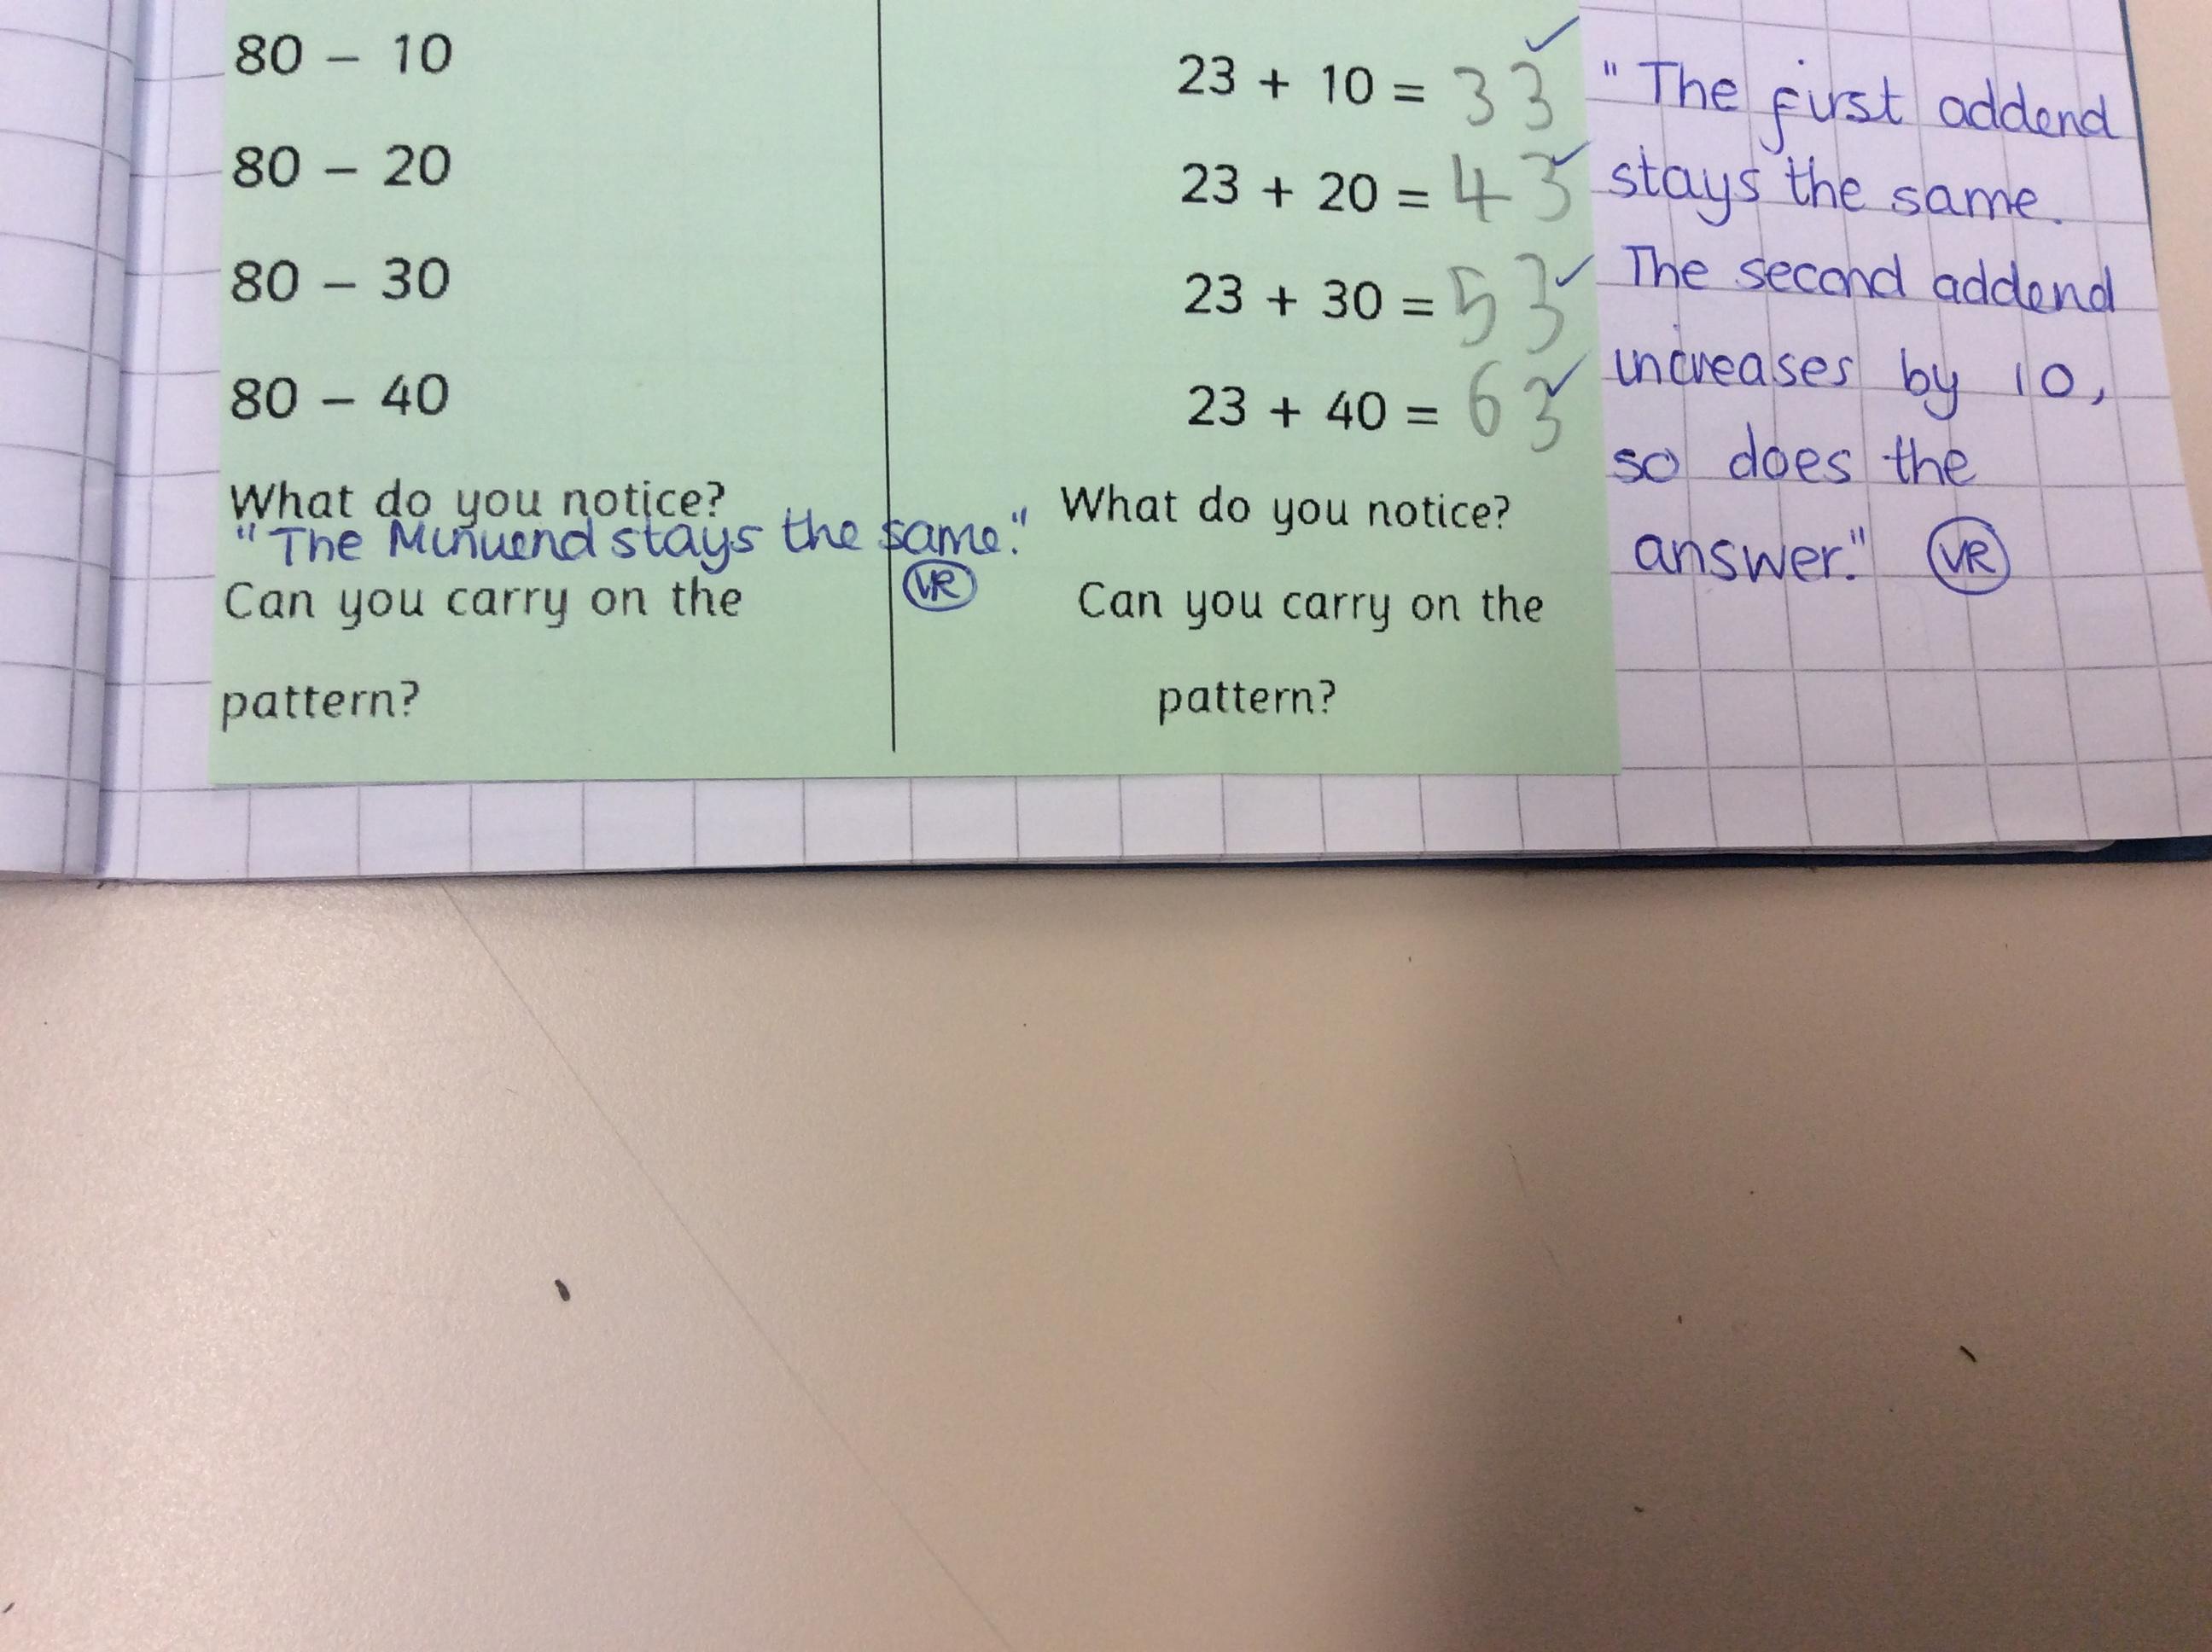 80 – 10
80 – 20
80 – 30
80 – 40
What do you notice?
"The Minuend stays the same."
VR
Can you carry on the
pattern?
23 + 10 = 33
23 + 20 = 43
23 + 30 = 53
23 + 40 = 63
What do you notice?
Can you carry on the
pattern?
"The first addend
stays the same.
The second addend
increases by 10,
so does the
answer." VR